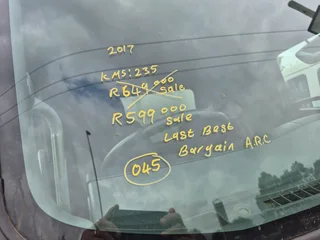 2017
KMS: 235
R649 000
Sale
R599 000
Sale
Last Best
Bargain A.R.C
045